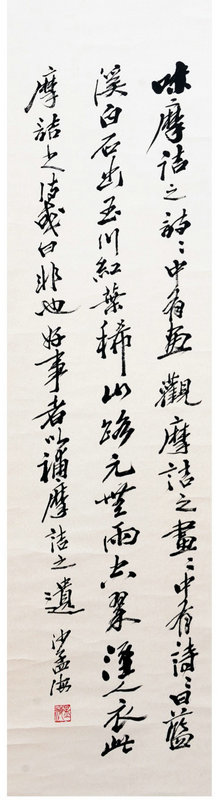 味摩诘之詩〻中有画觀摩诘之畫〻中有詩〻曰藍
溪白石出玉川紅葉稀山路元無雨空翠濕人衣此
摩詰之詩或曰非也好事者以補摩詰之遺 沙孟海